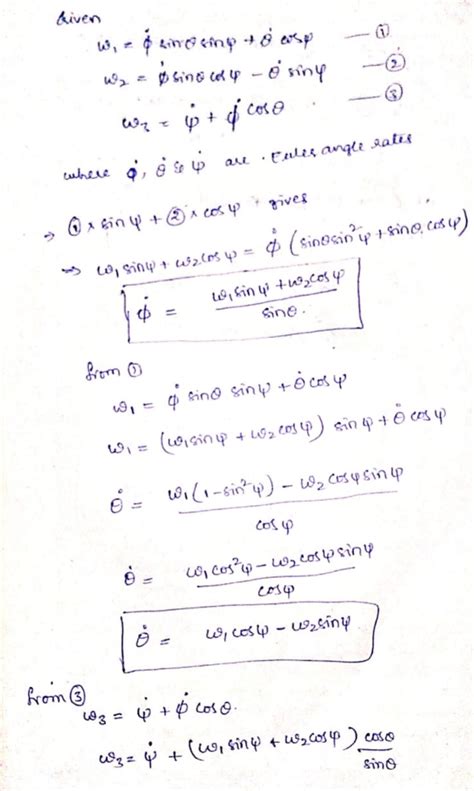 Given
ω₁ = φ̇ sinθ sinψ + θ̇ cosψ —①
ω₂ = φ̇ sinθ cosψ - θ̇ sinψ —②
ω₃ = ψ̇ + φ̇ cosθ —③
where φ̇, θ̇ & ψ̇ are . Euler angle rates
→ ① × sinψ + ② × cosψ gives
⇒ ω₁ sinψ + ω₂ cosψ = φ̇ (sinθ sin²ψ + sinθ cos²ψ)
φ̇ = (ω₁ sinψ + ω₂ cosψ) / sinθ.
from ①
ω₁ = φ̇ sinθ sinψ + θ̇ cosψ
ω₁ = (ω₁ sinψ + ω₂ cosψ) sinψ + θ̇ cosψ
θ̇ = (ω₁(1 - sin²ψ) - ω₂ cosψ sinψ) / cosψ
θ̇ = (ω₁ cos²ψ - ω₂ cosψ sinψ) / cosψ
θ̇ = ω₁ cosψ - ω₂ sinψ
from ③
ω₃ = ψ̇ + φ̇ cosθ.
ω₃ = ψ̇ + (ω₁ sinψ + ω₂ cosψ) cosθ / sinθ